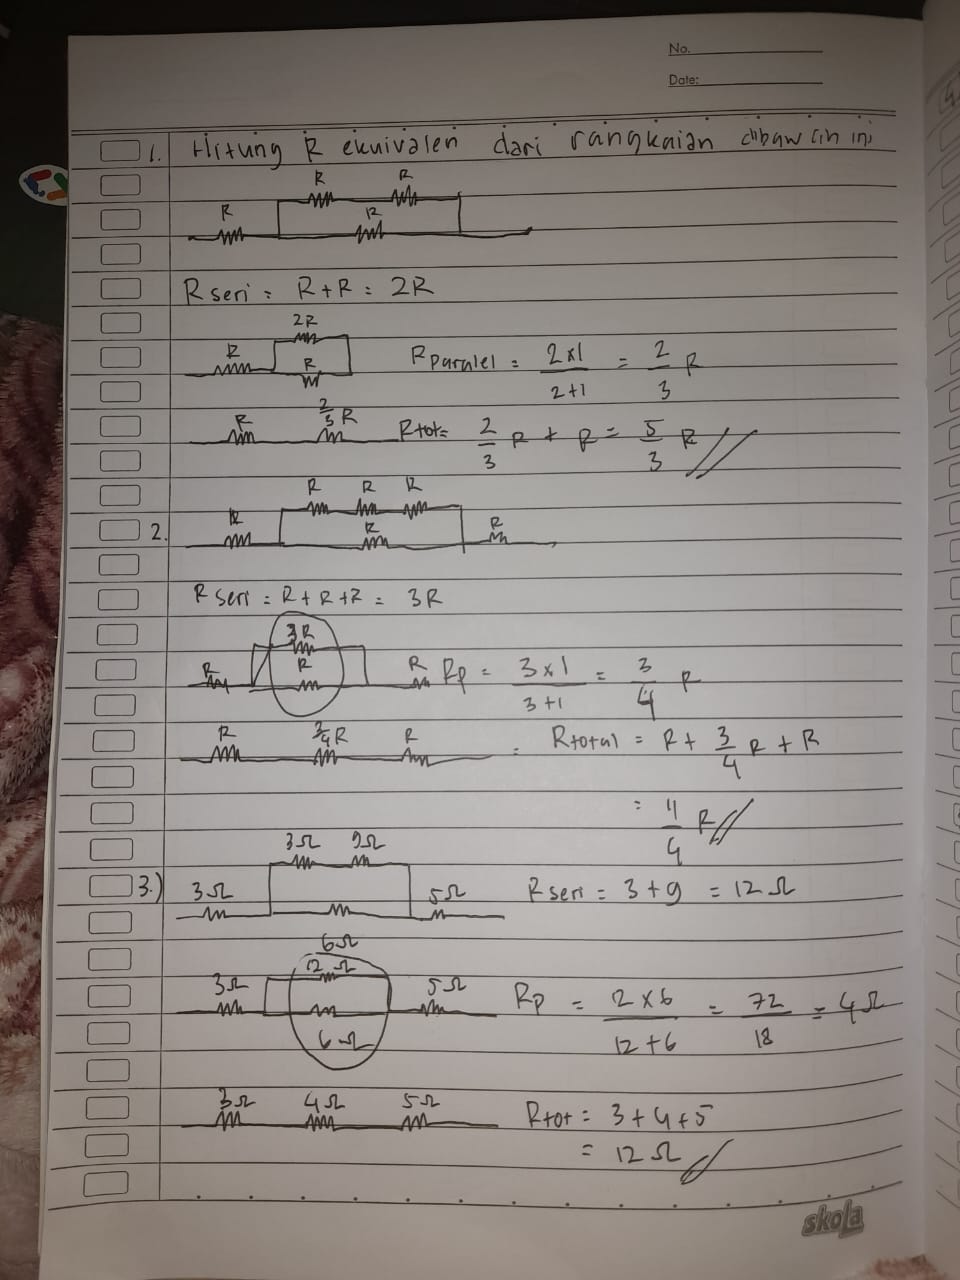 No.
Date:
1. Hitung R ekuivalen dari rangkaian dibawah ini
R R
R R
R seri = R + R = 2R
2R
R R R Paralel = 2x1/2+1 = 2/3 R
R 2/3 R Rtot = 2/3 R + R = 5/3 R //
R R R
2. R R R
R seri = R + R + R = 3R
3R
R R R Rp = 3x1/3+1 = 3/4 R
R 3/4 R R = Rtotal = R + 3/4 R + R
= 11/4 R //
3Ω 9Ω
3.) 3Ω 5Ω R seri = 3 + 9 = 12 Ω
6Ω
12 Ω
3Ω 5Ω Rp = 2 x 6/12 + 6 = 72/18 = 4Ω
6Ω
3Ω 4Ω 5Ω Rtot = 3 + 4 + 5
= 12 Ω //
skola